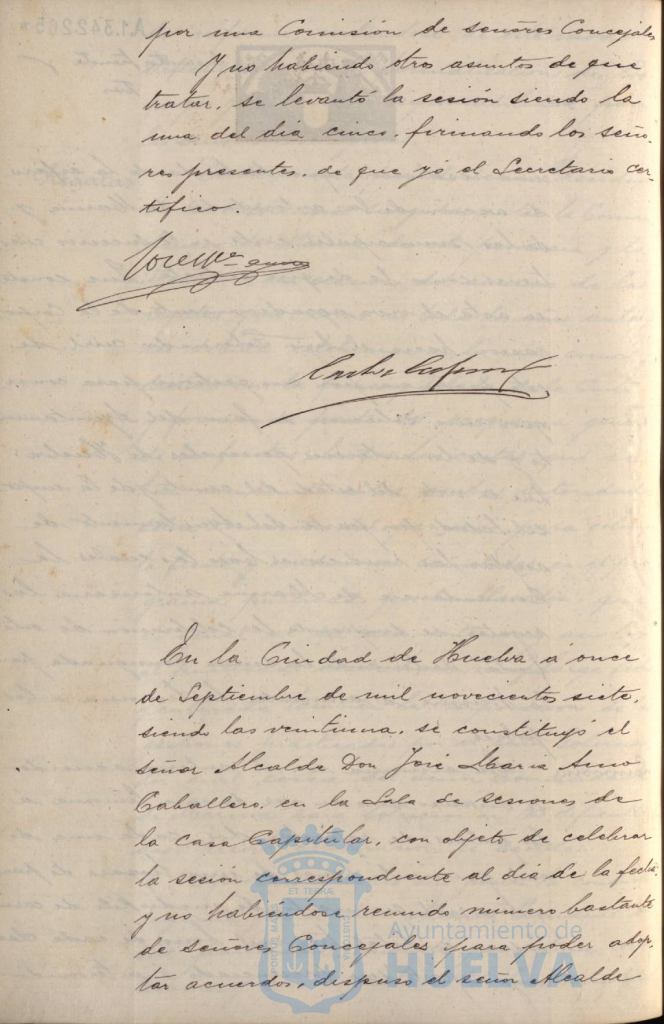 por una Comisión de señores Concejales
Y no habiendo otros asuntos de que
tratar, se levantó la sesión siendo la
una del dia cinco, firmando los seño-
res presentes, de que yó el Secretario cer-
tifico.
En la Ciudad de Huelva á once
de Septiembre de mil novecientos siete,
siendo las veintiuna, se constituyó el
señor Alcalde Don José Maria Amo
Caballero, en la Sala de sesiones de
la casa Capitular, con objeto de celebrar
la sesión correspondiente al dia de la fecha
y no habiéndose reunido número bastante
de señores Concejales para poder adop-
tar acuerdos, dispuso el señor Alcalde
Ayuntamiento de
HUELVA